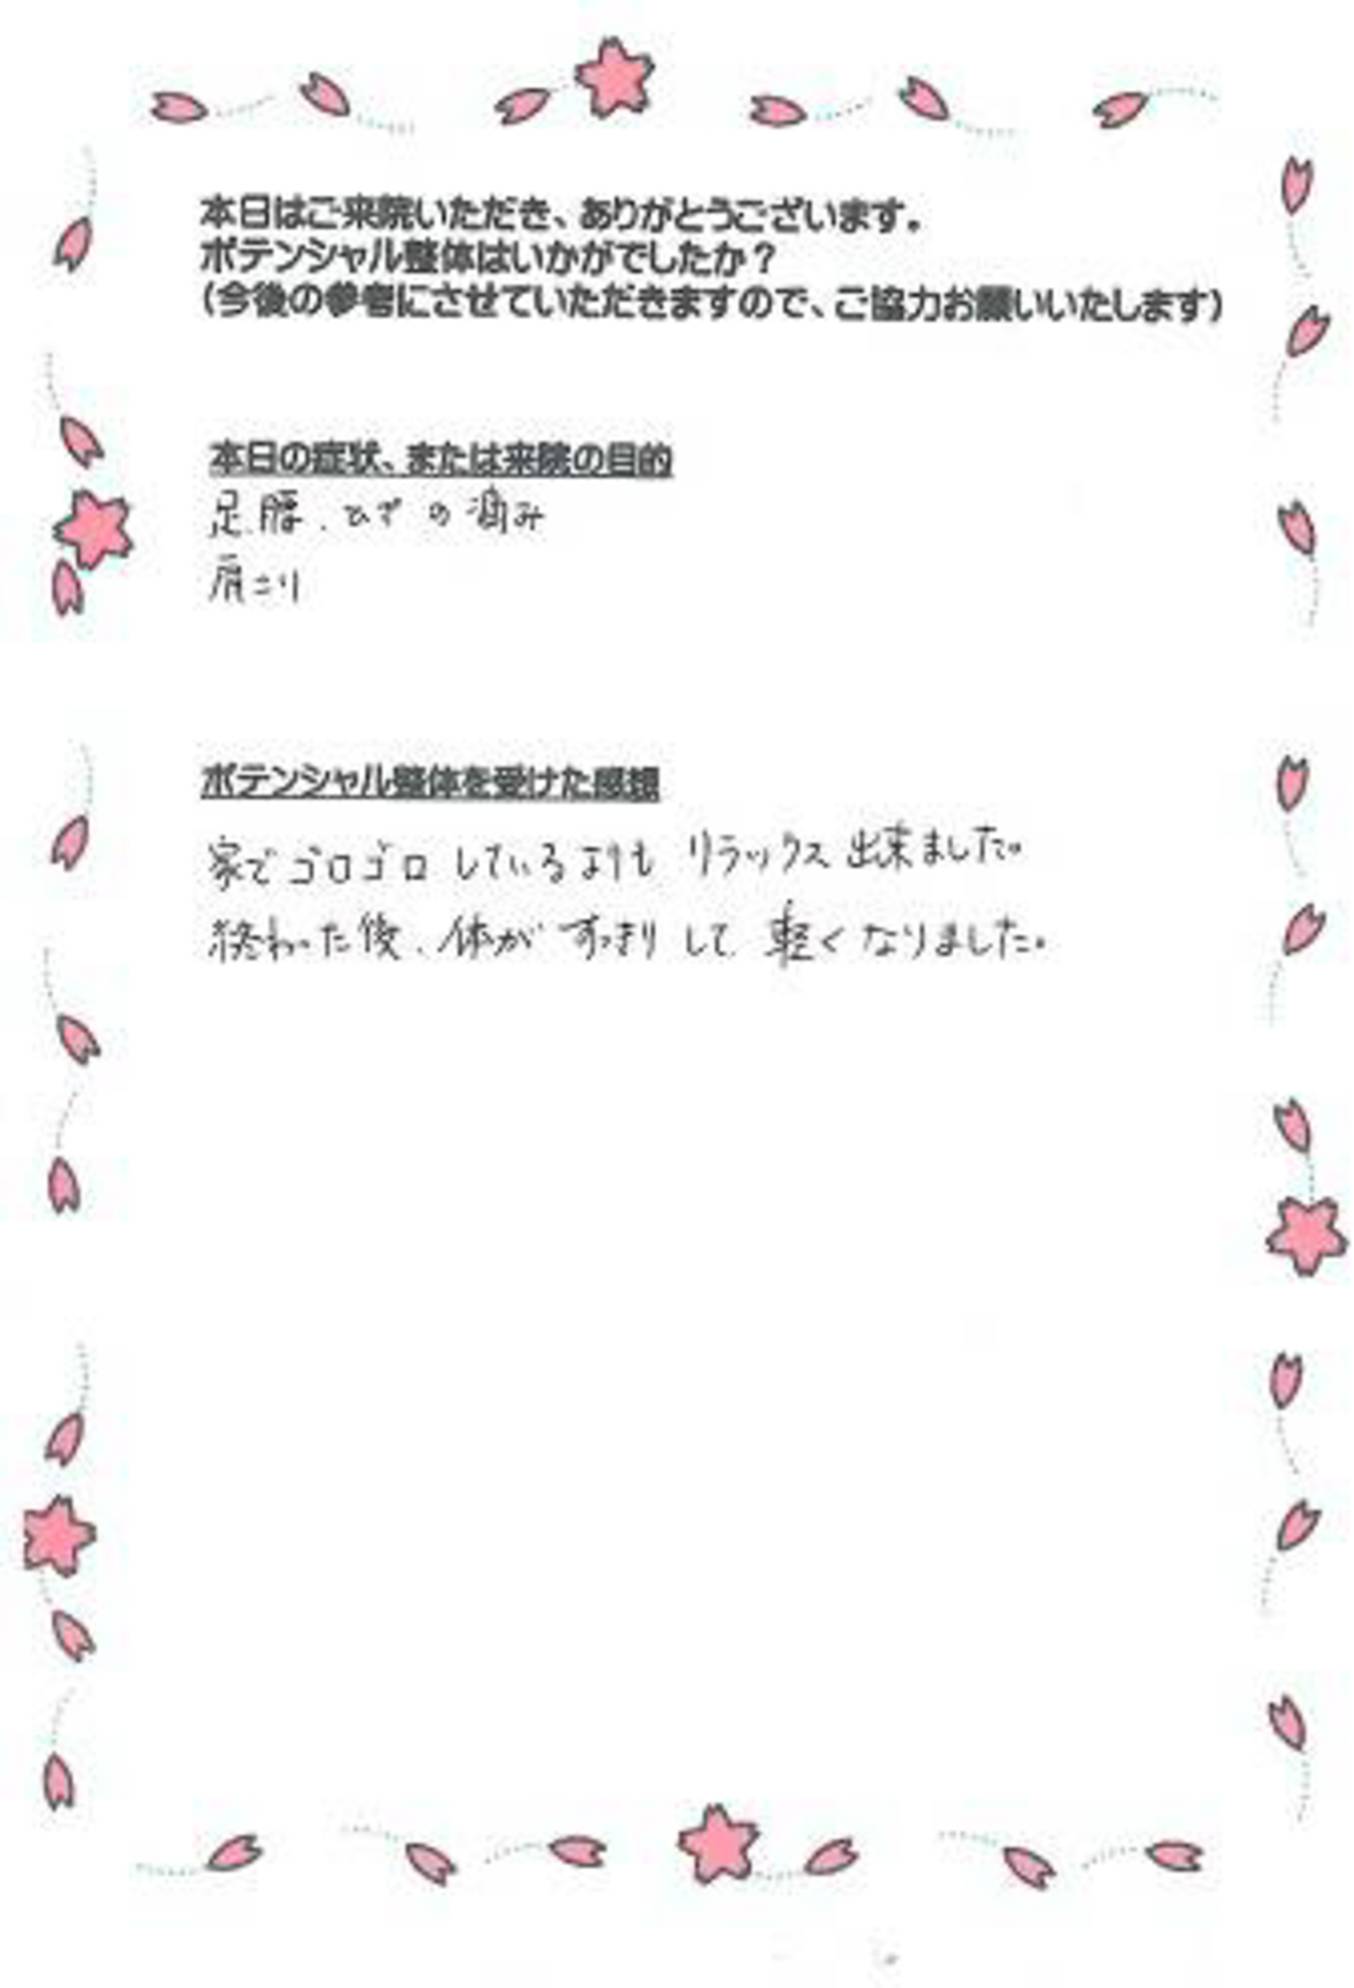 本日はご来院いただき、ありがとうございます。
ポテンシャル整体はいかがでしたか？
（今後の参考にさせていただきますので、ご協力お願いいたします）
本日の症状、または来院の目的
足、腰、ひざの痛み
肩こり
ポテンシャル整体を受けた感想
家でゴロゴロしているよりもリラックス出来ました。
終わった後、体がすっきりして軽くなりました。